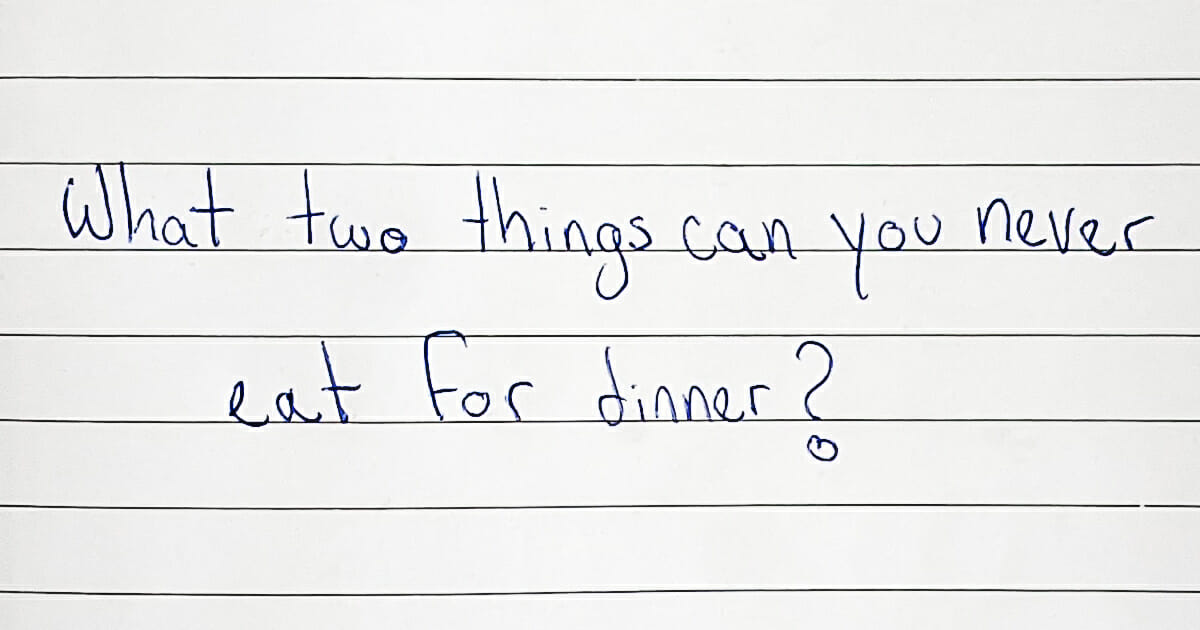 What two things can you never
eat for dinner?